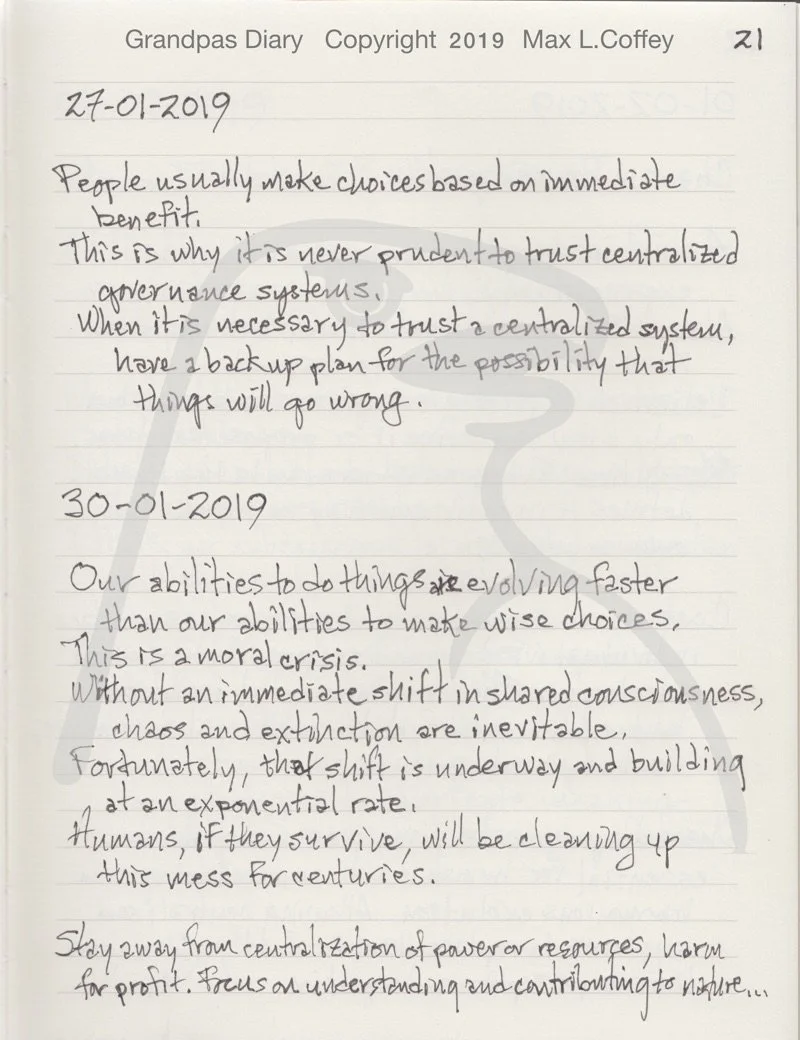 Grandpas Diary Copyright 2019 Max L.Coffey 21
27-01-2019
People usually make choices based on immediate
benefit.
This is why it is never prudent to trust centralized
governance systems.
When it is necessary to trust a centralized system,
have a backup plan for the possibility that
things will go wrong.
30-01-2019
Our abilities to do things are evolving faster
than our abilities to make wise choices.
This is a moral crisis.
Without an immediate shift in shared consciousness,
chaos and extinction are inevitable.
Fortunately, that shift is underway and building
at an exponential rate.
Humans, if they survive, will be cleaning up
this mess for centuries.
Stay away from centralization of power or resources, harm
for profit. Focus on understanding and contributing to nature...